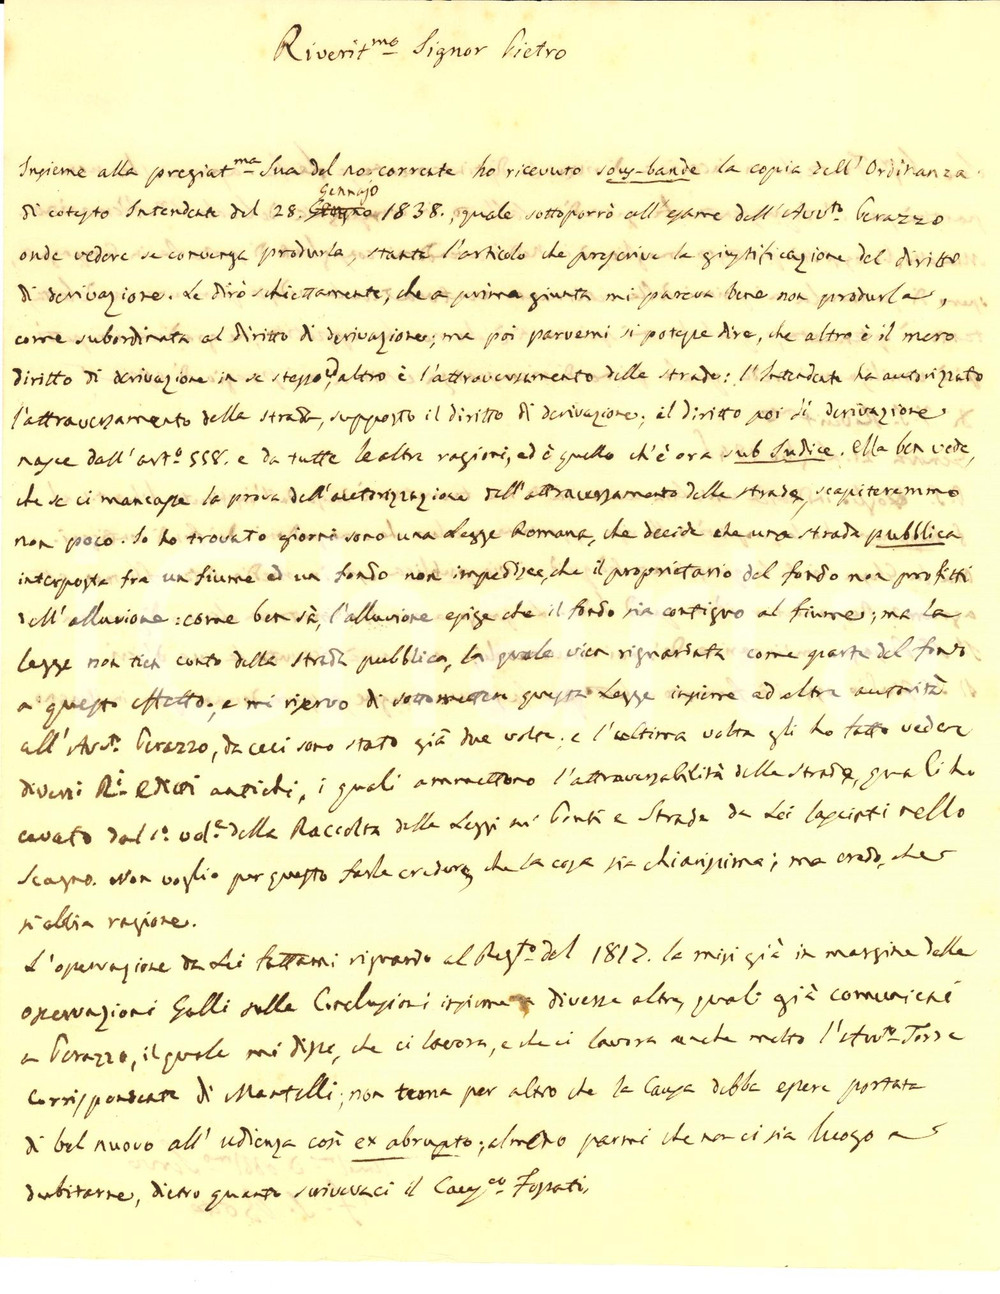 Riverit.mo Signor Pietro
Insieme alla pregiat.ma Sua del 20 corrente ho ricevuto sous-bande la copia dell'Ordinanza
di cotesto Intendente del 28. Giugno Gennajo 1838., quale sottoporrò all'esame dell'Avv.to Gerazzo
onde vedere se convenga produrla, stante l'articolo che prescrive la giustificazione del diritto
di derivazione. Le dirò schiettamente, che a prima giunta mi pareva bene non produrla,
come subordinata al diritto di derivazione; ma poi parvemi si potesse dire, che altro è il mero
diritto di derivazione in se stesso, ed altro è l'attraversamento delle strade: l'Intendente ha autorizzato
l'attraversamento della strada, supposto il diritto di derivazione; il diritto poi di derivazione
nasce dall'art.o 558. e da tutte le altre ragioni, ed è quello ch'è ora sub Judice. Ella ben vede,
che se ci mancasse la prova dell'autorizzazione dell'attraversamento delle strade, scapiteremmo
non poco. Io ho trovato giorni sono una Legge Romana, che decide che una strada pubblica
interposta fra un fiume ed un fondo non impedisce, che il proprietario del fondo non profitti
dell'alluvione: come ben sà, l'alluvione esige che il fondo sia contiguo al fiume; ma la
legge non tien conto della strada pubblica, la quale vien riguardata come parte del fondo
a questo effetto; e mi riservo di sottomettere questa Legge insieme ad altre autorità
all'Avv.to Gerazzo, da cui sono stato già due volte; e l'ultima volta gli ho fatto vedere
diversi R.i Editti antichi, i quali ammettono l'attraversabilità delle strade, quali ho
cavato dal 1.o vol.e della Raccolta delle Leggi su' Ponti e Strade da Lei lasciati nello
Scagno. Non voglio per questo farle credere, che la cosa sia chiarissima; ma credo, che
si abbia ragione.
L'osservazione da Lei fattami riguardo al Reg.to del 1817. la misi già in margine delle
osservazioni Galli sulle Conclusioni insieme a diverse altre, quali già comunicai
a Gerazzo, il quale mi disse, che ci lavora, e che ci lavora anche molto l'Avv.to Torre
corrispondente di Mantelli; non tema per altro che la Causa debba essere portata
di bel nuovo all'udienza così ex abrupto; almeno parmi che non ci sia luogo a
dubitarne, dietro quanto scrivevaci il Caus.co Fossati.